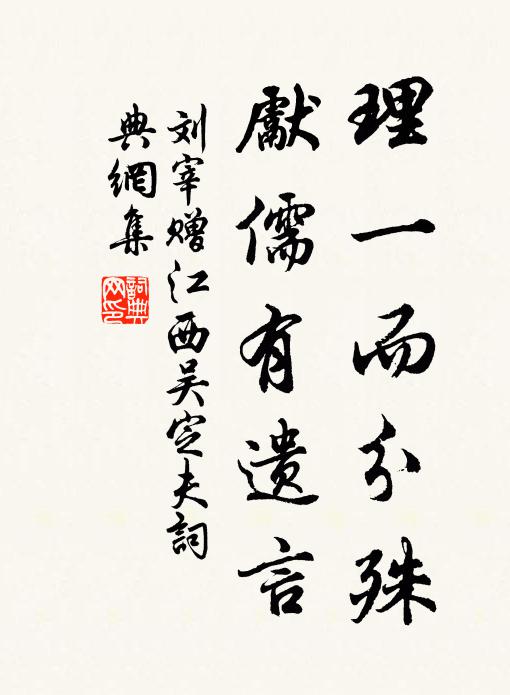 理一而分殊
獻儒有遺言
刘宰赠江西吴定夫詞
典網集
詞典网印